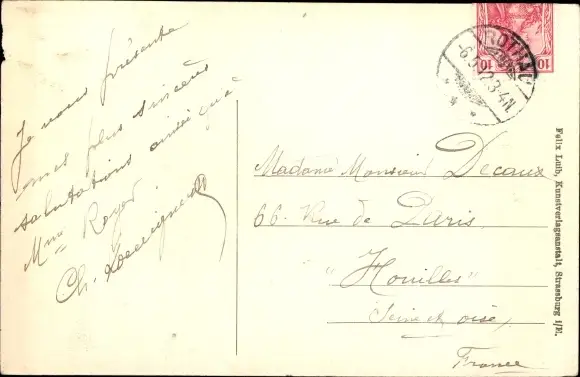 Je vous présente
mes plus sincères
salutations ainsi qu'à
Mme Royer.
Ch.
10 10
ROTHAU
3-4N.
Madame Monsieur Decaux
66 - Rue de Paris
"Houilles"
Seine et oise,
France
Felix Luib, Kunstverlagsanstalt, Strassburg i/E.